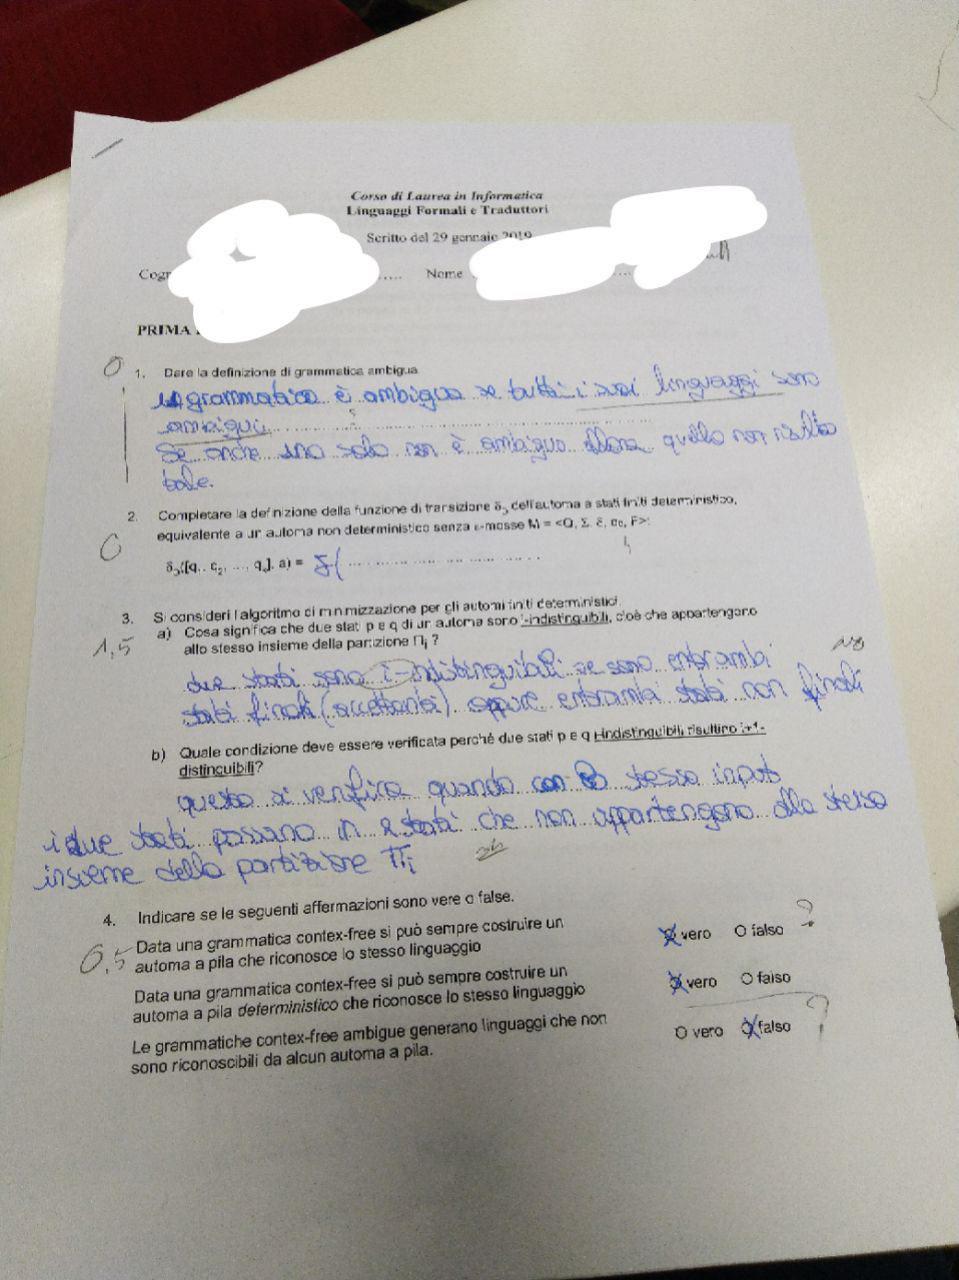 Corso di Laurea in Informatica
Linguaggi Formali e Traduttori
Scritto del 29 gennaio 2019
Cogn ..... Nome .....
PRIMA
0
1. Dare la definizione di grammatica ambigua
grammatica è ambigua se tutti i suoi linguaggi sono
ambigui.
Se anche uno solo non è ambiguo allora quello non risulta
tale.
2. Completare la definizione della funzione di transizione δ dell'automa a stati finiti deterministico,
equivalente a un automa non deterministico senza ε-mosse M = <Q, Σ, δ, q₀, F>:
0
([q₁, q₂, ..., qᵢ], a) = δ(
3. Si consideri l'algoritmo di minimizzazione per gli automi finiti deterministici.
1,5
a) Cosa significa che due stati p e q di un automa sono i-indistinguibili, cioè che appartengono
allo stesso insieme della partizione Πᵢ ?
due stati sono i-indistinguibili se sono entrambi
stati finali (accettanti) oppure entrambi stati non finali
no
b) Quale condizione deve essere verificata perché due stati p e q i-indistinguibili risultino i+1-
distinguibili?
questo si verifica quando con lo stesso input
i due stati passano in 2 stati che non appartengono allo stesso
insieme della partizione Πᵢ
4. Indicare se le seguenti affermazioni sono vere o false.
0,5
Data una grammatica contex-free si può sempre costruire un
automa a pila che riconosce lo stesso linguaggio
vero O falso ?
Data una grammatica contex-free si può sempre costruire un
automa a pila deterministico che riconosce lo stesso linguaggio
vero O falso
Le grammatiche contex-free ambigue generano linguaggi che non
sono riconoscibili da alcun automa a pila.
O vero falso ?